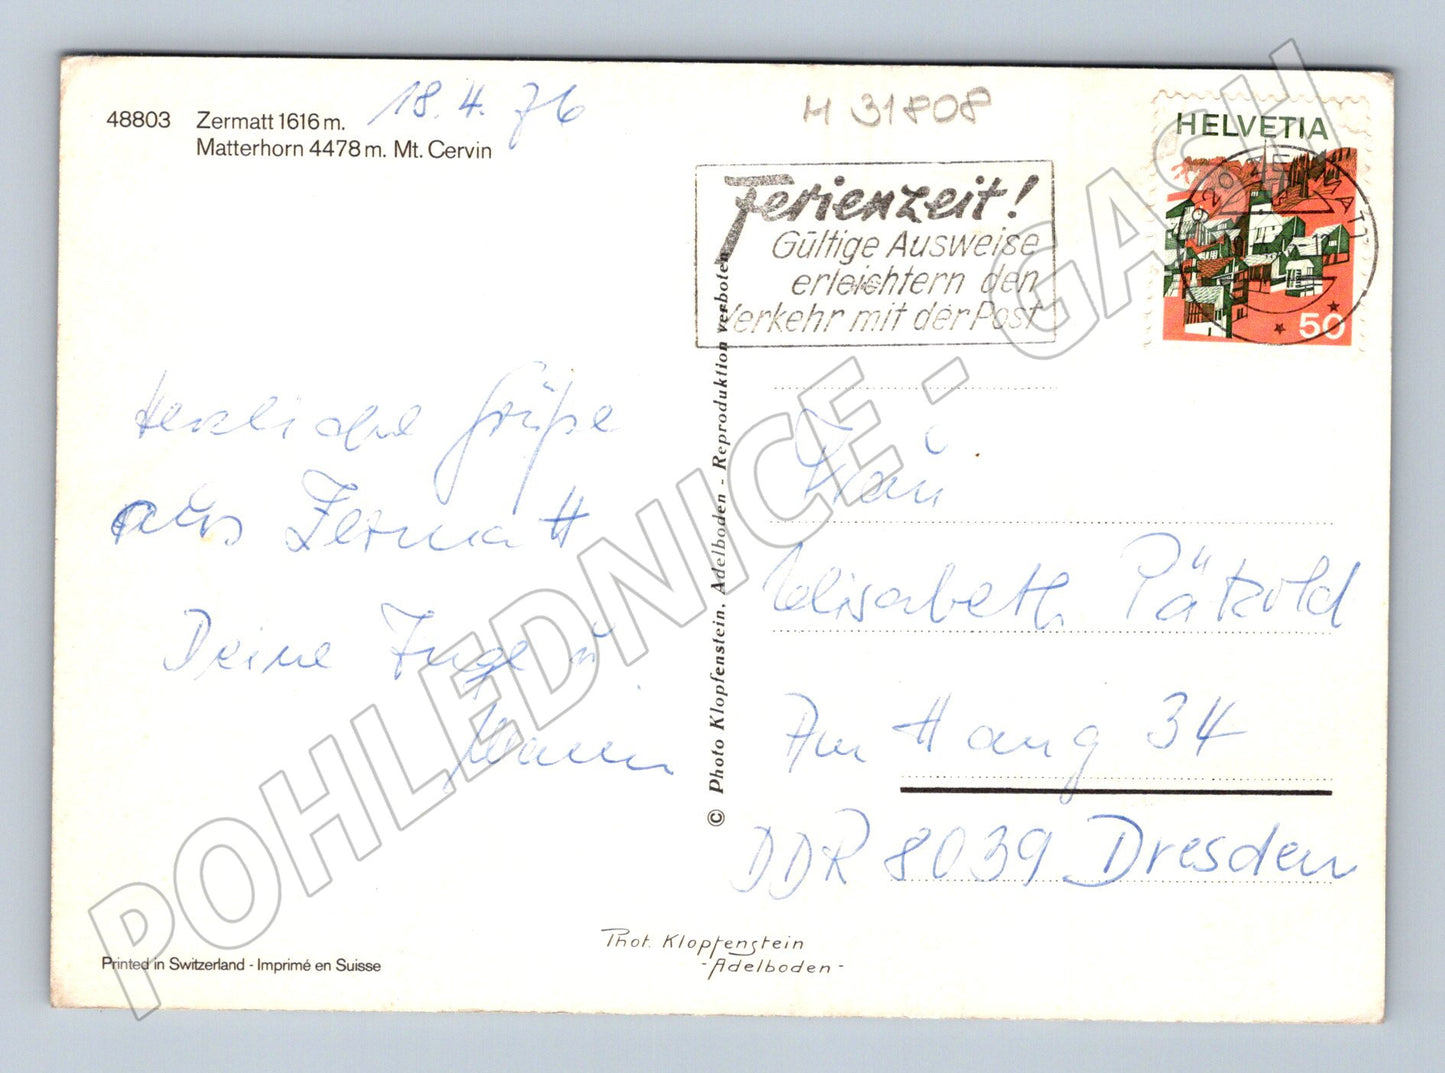 48803 Zermatt 1616 m. 18.4.76
Matterhorn 4478 m. Mt. Cervin
M 31808
HELVETIA
50
Ferienzeit!
Gültige Ausweise
erleichtern den
Verkehr mit der Post
Herzliche Grüße
aus Zermatt
Deine Inge u
© Photo Klopfenstein, Adelboden - Reproduktion verboten
Frau
Elisabeth Pätzold
Am Hang 34
DDR 8039 Dresden
Phot. Klopfenstein
-Adelboden-
Printed in Switzerland - Imprimé en Suisse
POHLEDNICE - GASH